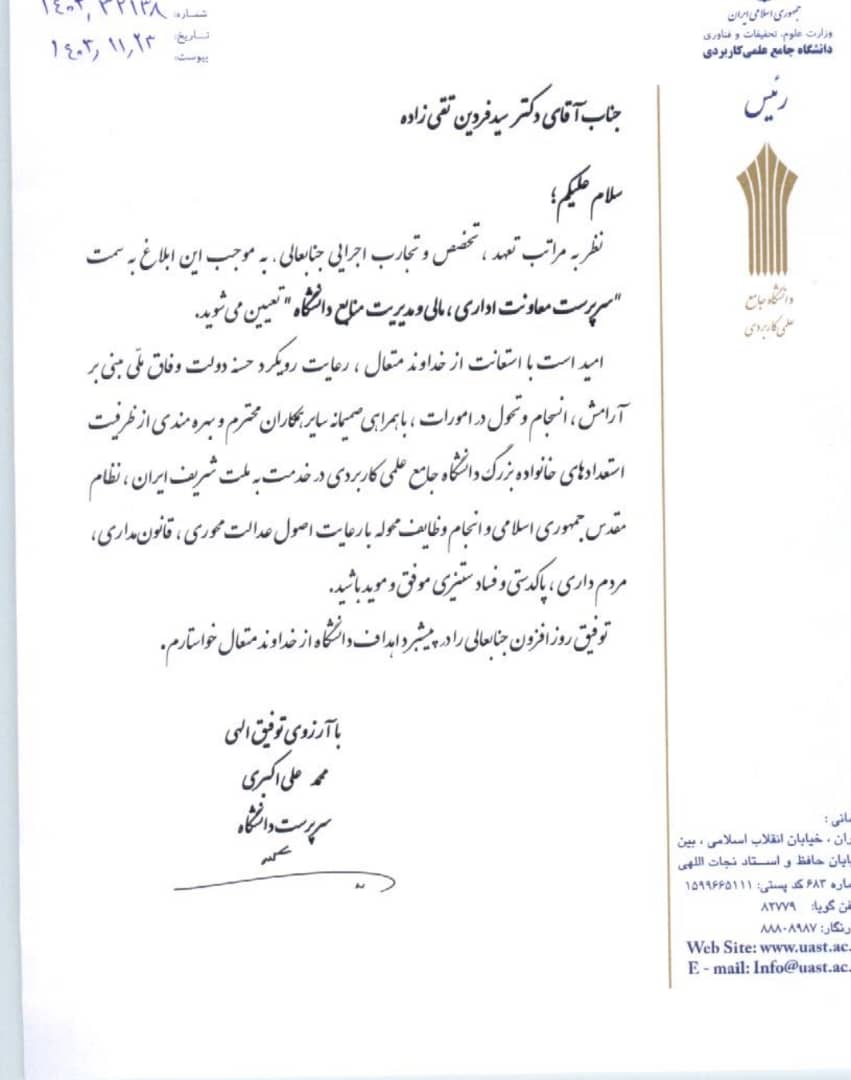 جمهوری اسلامی ایران
وزارت علوم، تحقیقات و فناوری
دانشگاه جامع علمی کاربردی
رئیس
دانشگاه جامع
علمی کاربردی
شماره:
تاریخ: ۱۴۰۳,۱۱,۲۳
پیوست:
جناب آقای دکتر سید فردین تقی زاده
سلام علیکم؛
نظر به مراتب تعهد، تخصص و تجارب اجرایی جنابعالی، به موجب این ابلاغ به سمت
"سرپرست معاونت اداری، مالی و مدیریت منابع دانشگاه" تعیین می شوید.
امید است با استعانت از خداوند متعال، رعایت رویکرد حسنه دولت وفاق ملّی مبنی بر
آرامش، انسجام و تحول در امورات، با همراهی صمیمانه سایر همکاران محترم و بهره مندی از ظرفیت
استعدادهای خانواده بزرگ دانشگاه جامع علمی کاربردی در خدمت به ملت شریف ایران، نظام
مقدس جمهوری اسلامی و انجام وظایف محوله با رعایت اصول عدالت محوری، قانون مداری،
مردم داری، پاکدستی و فساد ستیزی موفق و موید باشید.
توفیق روز افزون جنابعالی را در پیشبرد اهداف دانشگاه از خداوند متعال خواستارم.
با آرزوی توفیق الهی
محمد علی اکبری
سرپرست دانشگاه
خیابان انقلاب اسلامی، بین
حافظ و اسـتاد نجات اللهی
۶۸۳ کد پستی: ۱۵۹۹۶۶۵۱۱۱
گویا: ۸۲۷۷۹
۸۸۸۰۸۹۸۷
Web Site: www.uast.ac.
E - mail: Info@uast.ac.